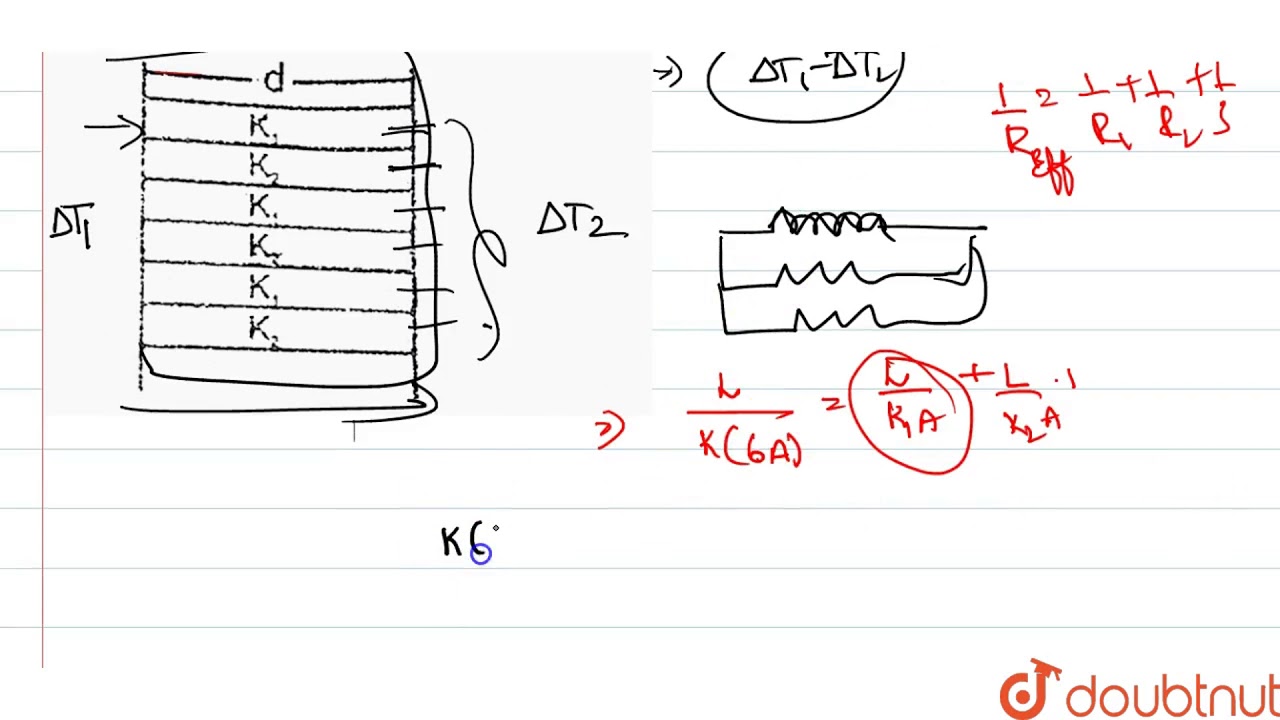 d
K₁
K₂
K₁
K₂
K₁
K₂
ΔT₁
ΔT₂
⇒) ΔT₁ - ΔT₂
1/R_Eff = 1/R₁ + 1/R₂ + 1/3
⇒) L/K(6A) = L/K₁A + L/K₂A
K(6
doubtnut